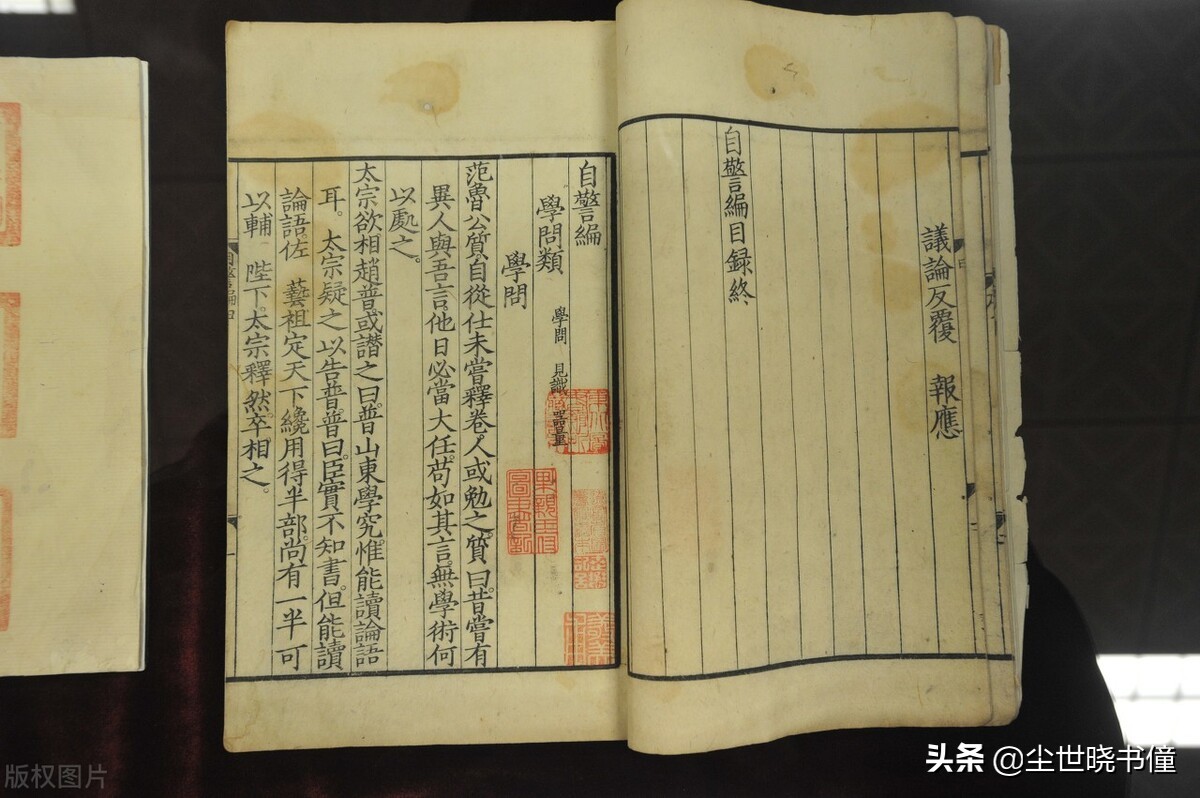 議論反覆　報應
自警編目録終
自警編
學問類
學問　見識　器量
學問
范魯公質自從仕未嘗釋卷人或勉之質曰昔嘗有
異人與吾言他日必當大任苟如其言無學術何
以處之。
太宗欲相趙普或譖之曰普山東學究惟能讀論語
耳。太宗疑之以告普普曰臣實不知書但能讀
論語佐　藝祖定天下纔用得半部尚有一半可
以輔　陛下太宗釋然卒相之。
自警編
版权图片
头条 @尘世晓书僮